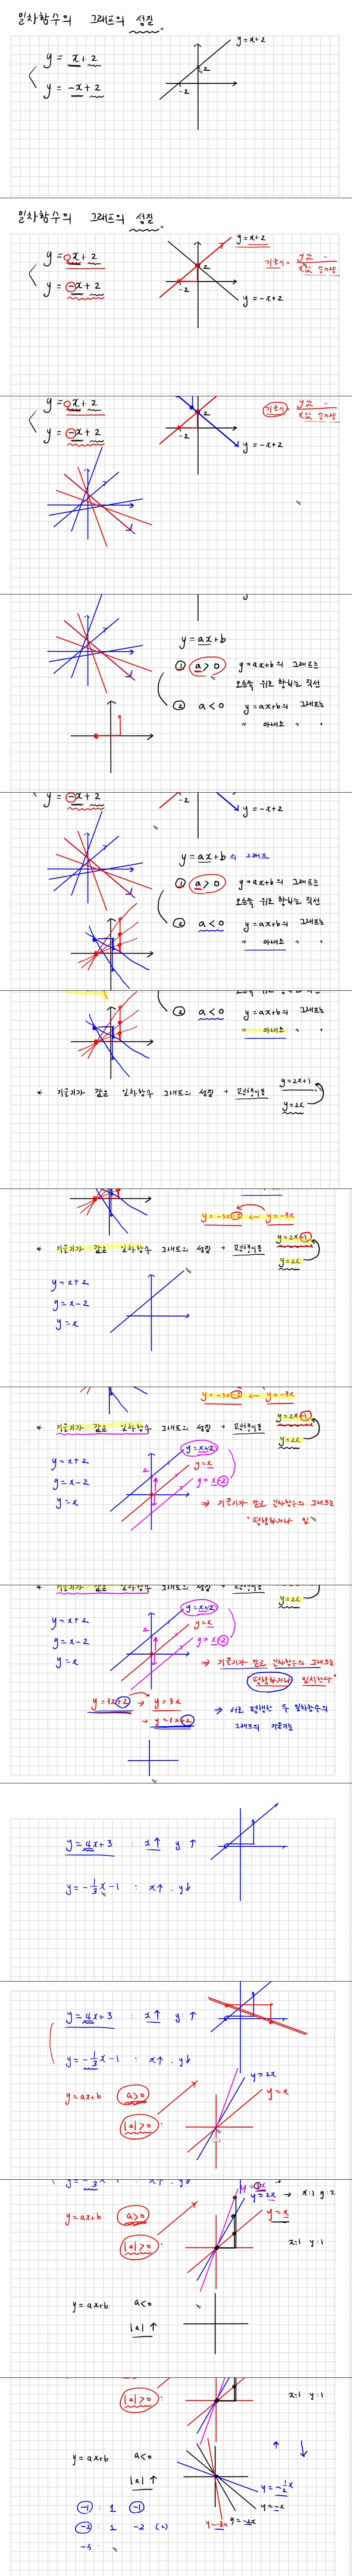 일차함수의 그래프의 성질.
y = x + 2
y = -x + 2
y = x+2
2
-2
일차함수의 그래프의 성질.
y = x + 2
y = -x + 2
y = x+2
2
-2
y = -x+2
기울기 = y값 〃 / x값 증가량
y = x + 2
y = -x + 2
2
-2
y = -x+2
기울기 = y값 〃 / x값 증가량
y = ax+b
① a > 0 y = ax+b의 그래프는
오른쪽 위로 향하는 직선
② a < 0 y = ax+b의 그래프는
〃 아래로 〃 〃
y = -x + 2
-2
y = -x+2
y = ax+b의 그래프
① a > 0 y = ax+b의 그래프는
오른쪽 위로 향하는 직선
② a < 0 y = ax+b의 그래프는
〃 아래로 〃 〃
② a < 0 y = ax+b의 그래프는
〃 아래로 〃 〃
* 기울기가 같은 일차함수 그래프의 성질 + 평행이동
y = 2x+1
y = 2x
y = -3x-2 ← y = -3x
* 기울기가 같은 일차함수 그래프의 성질 + 평행이동
y = 2x+1
y = 2x
y = x+2
y = x-2
y = x
y = -3x-2 ← y = -3x
* 기울기가 같은 일차함수 그래프의 성질 + 평행이동
y = 2x+1
y = 2x
y = x+2
y = x-2
y = x
2
y = x+2
y = x
y = x-2
⇒ 기울기가 같은 일차함수의 그래프는
"평행하거나 일
* 기울기가 같은 일차함수 그래프의 성질 + 평행이동
y = 2x
y = x+2
y = x-2
y = x
2
y = x+2
y = x
y = x-2
⇒ 기울기가 같은 일차함수의 그래프는
평행하거나 일치한다."
y = 3x+2 → y = 3x
→ y = 3x+2
→ 서로 평행한 두 일차함수의
그래프의 기울기는
y = 4x+3 : x↑ y: ↑
y = -1/3 x - 1 : x↑ - y↓
y = 4x+3 : x↑ y: ↑
y = -1/3 x - 1 : x↑ - y↓
y = ax+b a>0
|a| > 0 :
y = 2x
y = x
y = ax+b a>0
|a| > 0 :
y = 2x → x:1 y:2
y = x
x:1 y:1
y = ax+b a<0
|a| ↑
|a| > 0 :
x:1 y:1
y = ax+b a<0
|a| ↑
↑ ↓
y = -1/2 x
y = -x
y = -2x
y = -3x
-1 : 1 -1
-2 : 1 -2 (2)
-3 :